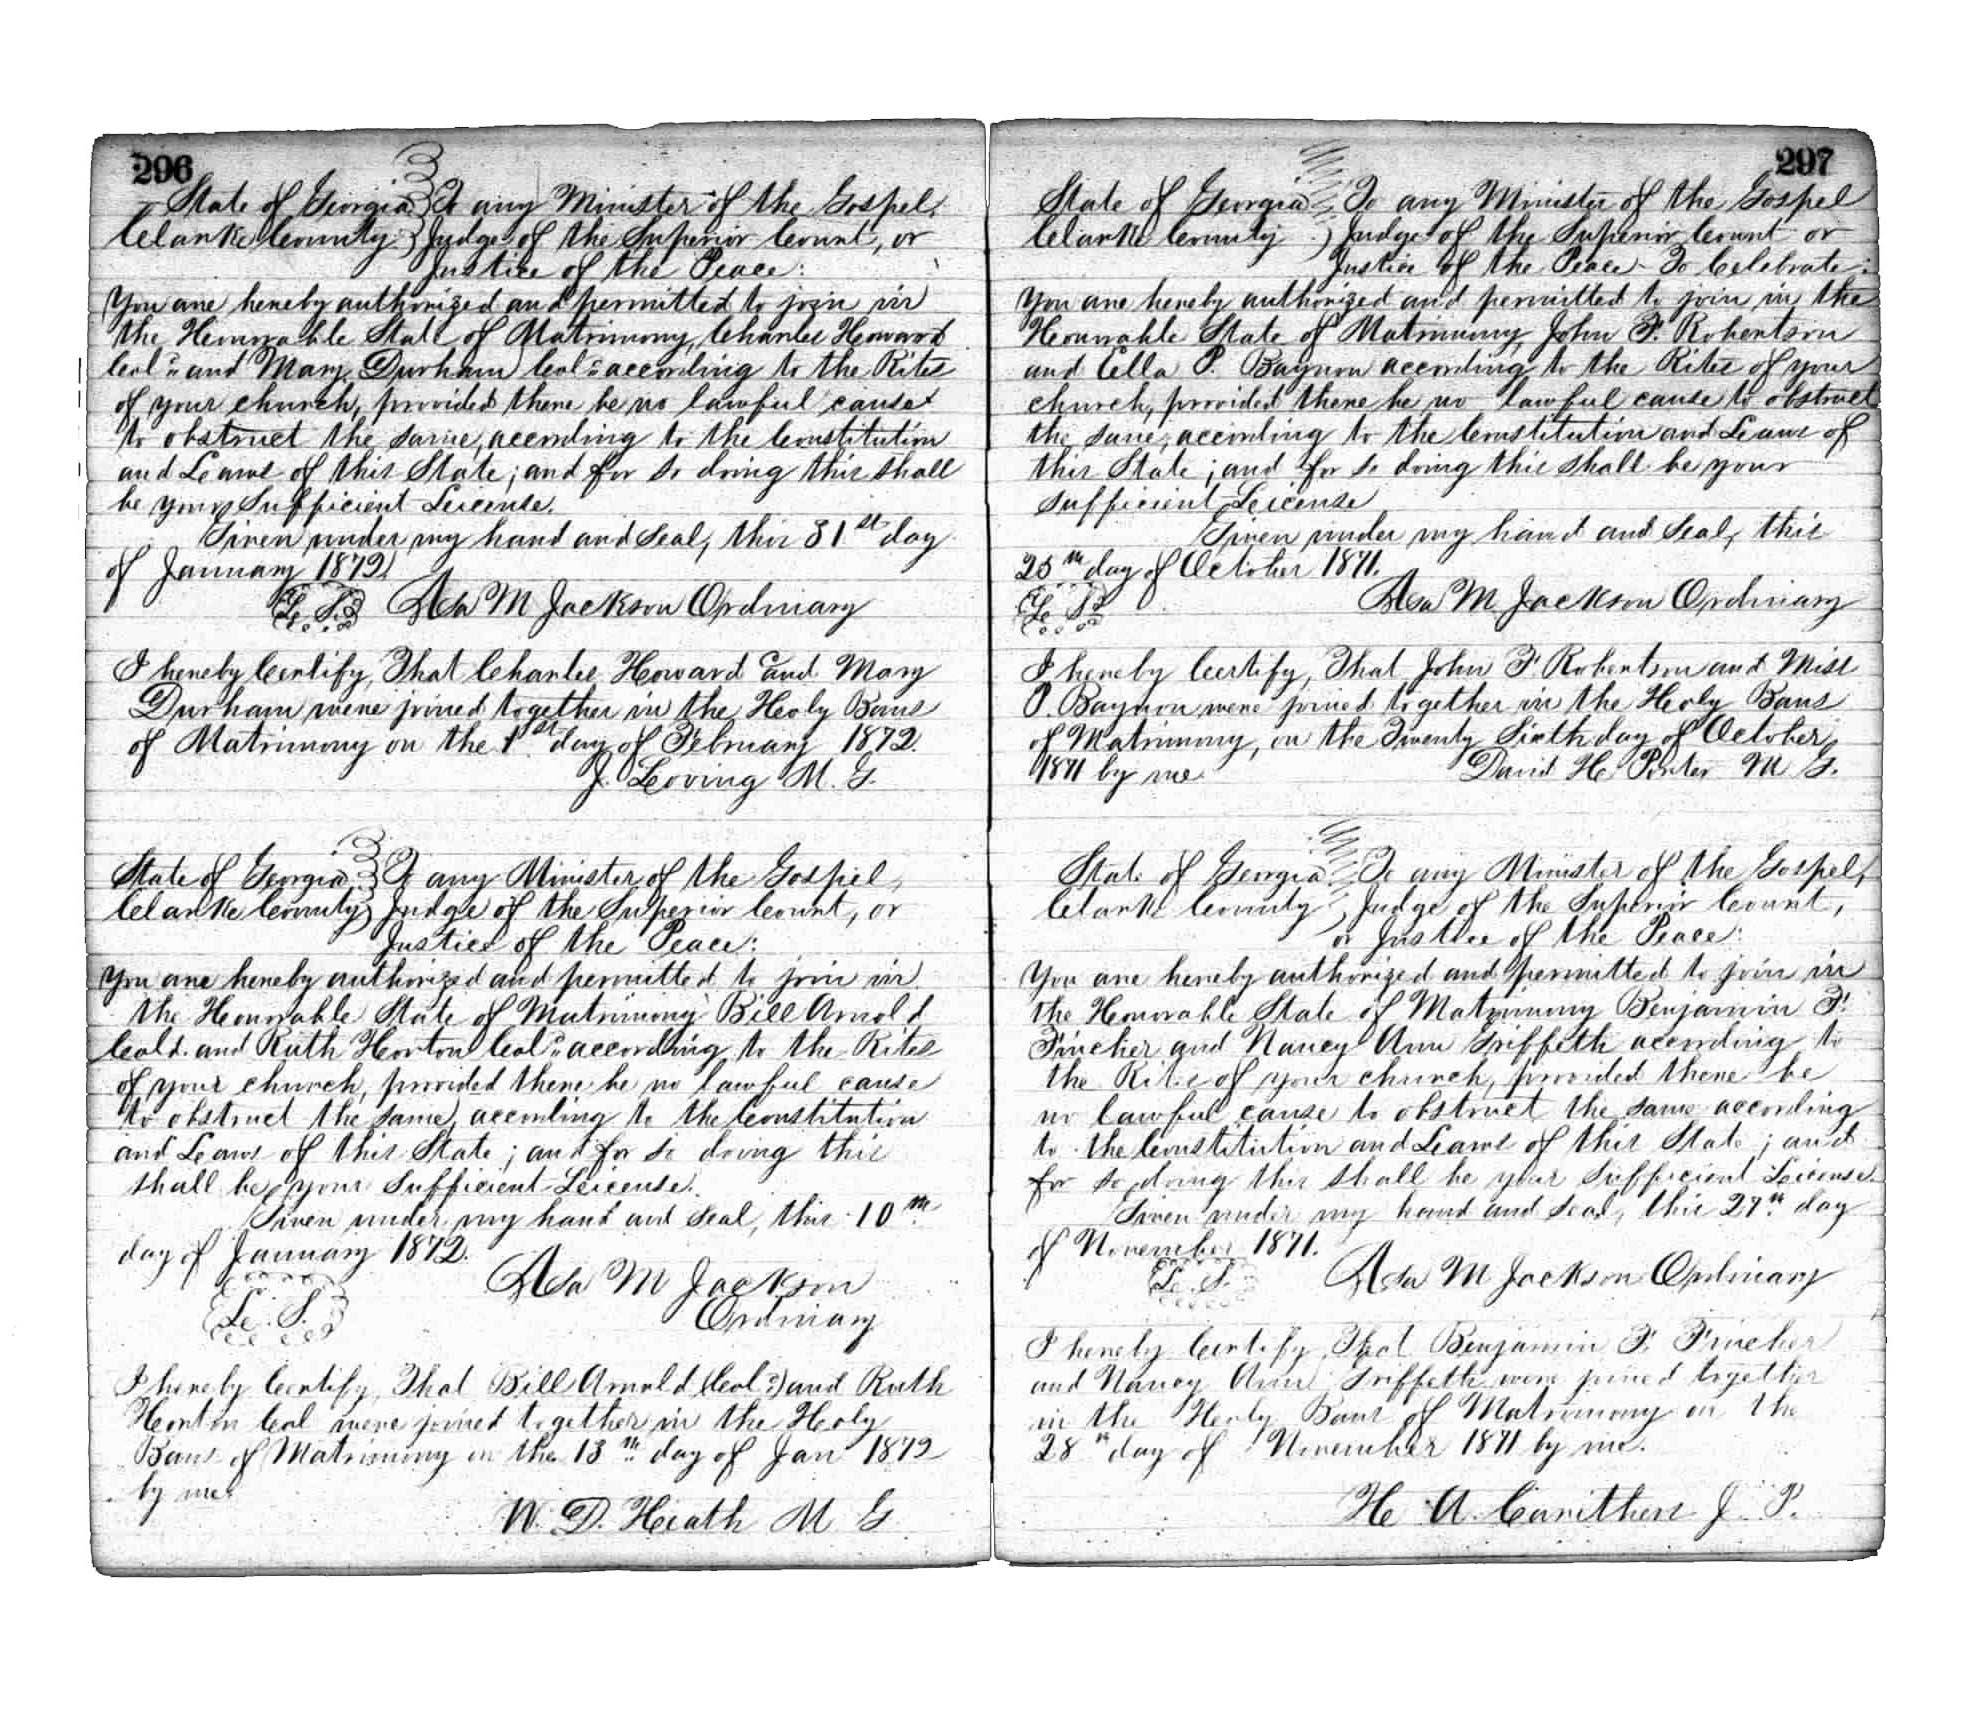 296
State of Georgia } To any Minister of the Gospel,
Clarke County } Judge of the Superior Court, or
Justice of the Peace:
You are hereby authorized and permitted to join in
the Honorable State of Matrimony, Charles Howard
Col^d and Mary Durham Col^d according to the Rites
of your church, provided there be no lawful cause
to obstruct the same, according to the Constitution
and Laws of this State; and for so doing this shall
be your Sufficient License.
Given under my hand and seal, this 31st day
of January 1872
L. S. Asa M Jackson Ordinary
I hereby Certify, That Charles Howard and Mary
Durham were joined together in the Holy Bans
of Matrimony on the 1st day of February 1872.
J. Loving M. G.
State of Georgia } To any Minister of the Gospel,
Clarke County } Judge of the Superior Court, or
Justice of the Peace:
You are hereby authorized and permitted to join in
the Honorable State of Matrimony Bill Arnold
Cold. and Ruth Horton Col^d according to the Rites
of your church, provided there be no lawful cause
to obstruct the same, according to the Constitution
and Laws of this State; and for so doing this
shall be your Sufficient License.
Given under my hand and seal, this 10th
day of January 1872.
Asa M Jackson
L. S. Ordinary
I hereby Certify, That Bill Arnold (Col^d) and Ruth
Horton Col were joined together in the Holy
Bans of Matrimony on the 13th day of Jan 1872
by me.
W. D. Heath M G
297
State of Georgia } To any Minister of the Gospel
Clarke County } Judge of the Superior Court or
Justice of the Peace - To Celebrate:
You are hereby authorized and permitted to join in the
Honorable State of Matrimony John F. Robertson
and Ella P. Baynon according to the Rites of your
church, provided there be no lawful cause to obstruct
the same, according to the Constitution and Laws of
this State; and for so doing this shall be your
sufficient License
Given under my hand and Seal, this
25th day of October 1871.
L S Asa M Jackson Ordinary
I hereby Certify, That John F Robertson and Miss
P. Baynon were joined together in the Holy Bans
of Matrimony, on the Twenty Sixth day of October
1871 by me David H. Porter M G.
State of Georgia } To any Minister of the Gospel,
Clarke County } Judge of the Superior Court,
or Justice of the Peace:
You are hereby authorized and permitted to join in
the Honorable State of Matrimony Benjamin F.
Fincher and Nancy Ann Griffeth according to
the Rites of your church, provided there be
no lawful cause to obstruct the same according
to the Constitution and Laws of this State; and
for so doing this shall be your sufficient License.
Given under my hand and seal, this 27th day
of November 1871.
L. S. Asa M Jackson Ordinary
I hereby Certify, That Benjamin F. Fincher
and Nancy Ann Griffeth were joined together
in the Holy Bans of Matrimony on the
28th day of November 1871 by me.
H A. Carithers J. P.